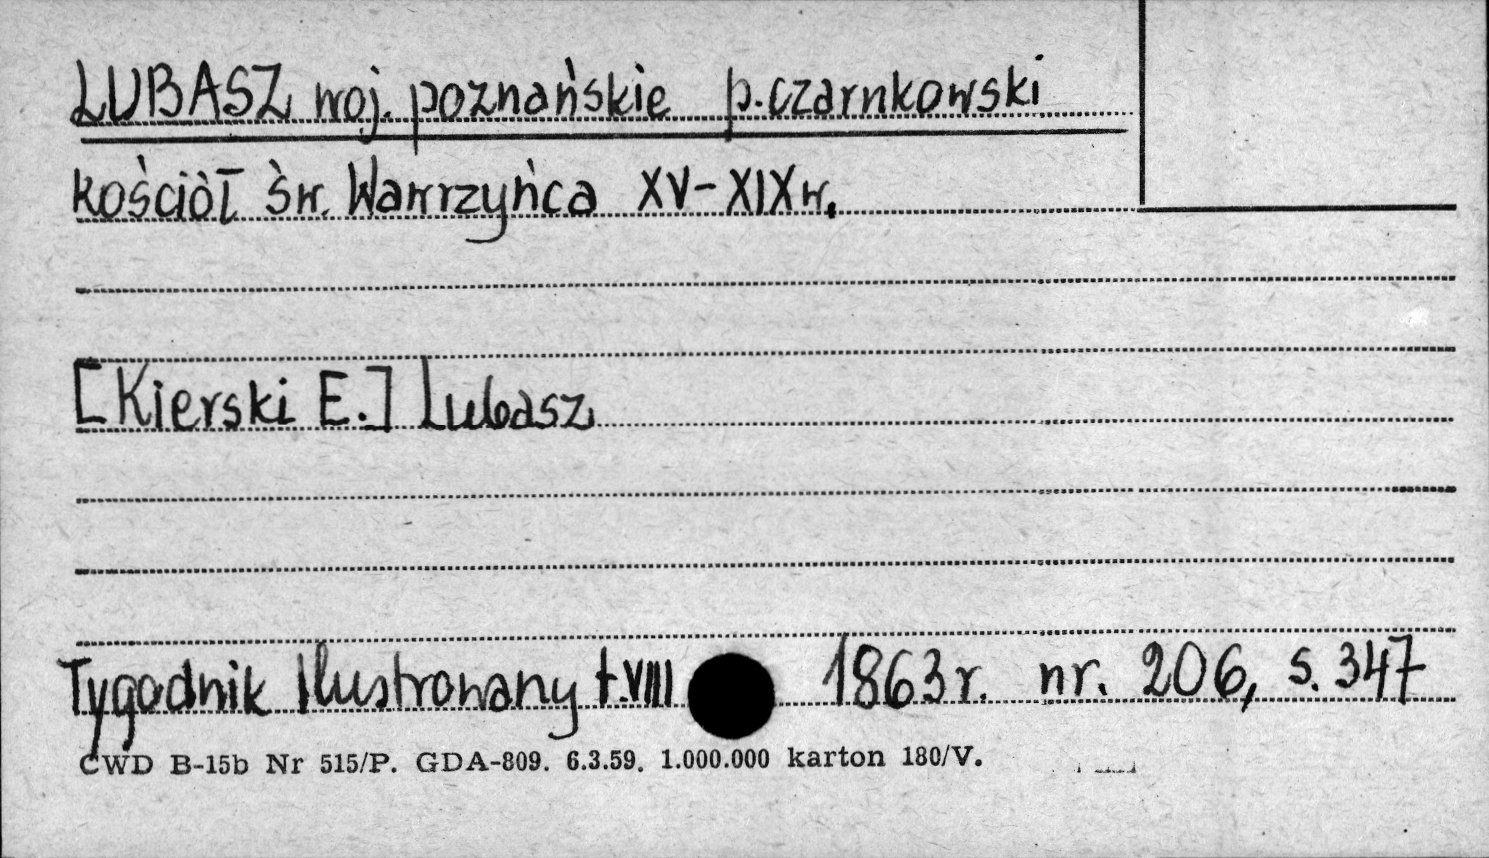 LUBASZ woj. poznańskie p. czarnkowski
kościół św. Wawrzyńca XV-XIX w.
[Kierski E.] Lubasz
Tygodnik Ilustrowany t. VIII 1863 r. nr. 206, s. 347
CWD B-15b Nr 515/P. GDA-809. 6.3.59. 1.000.000 karton 180/V.